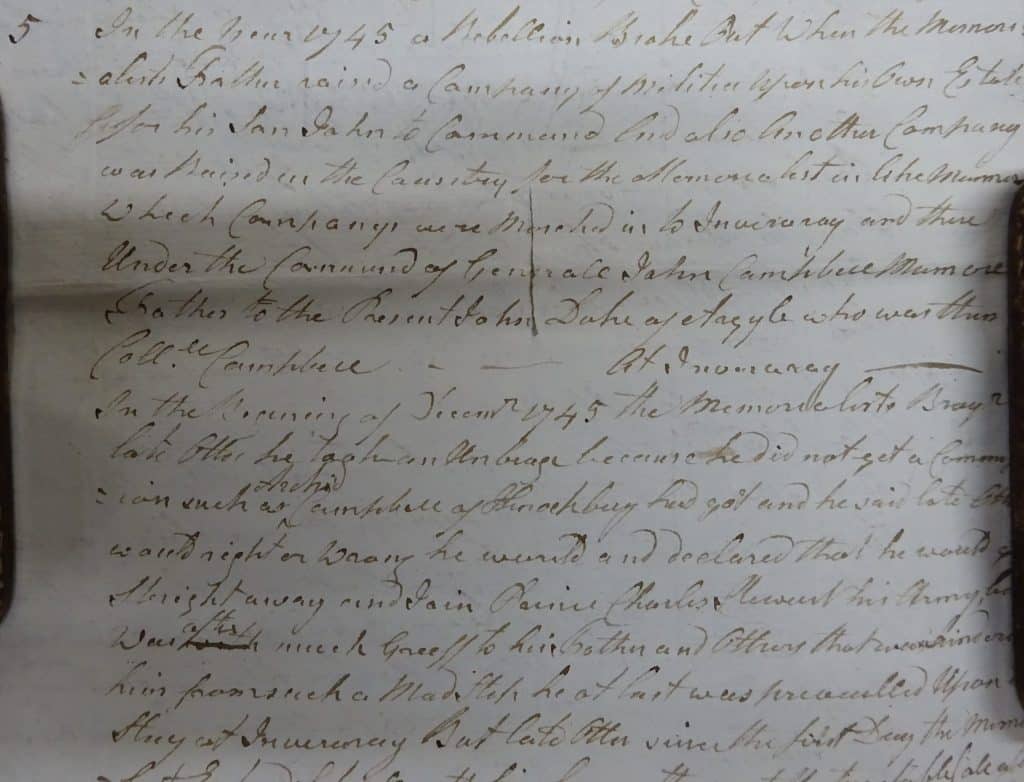 5 In the Year 1745 a Rebellion Broke Out When the Memori
=alists Father raised a Company of Militia Upon his Own Estate
for his Son John to Command And also Another Company
was Raised in the Country for the Memorialist in like Manner
Which Companys were Marched in to Inveraray and there
Under the Command of Generall John Campbell Mamore
Father to the Present John Duke of Argyle who was then
Coll.ll Campbell - - At Inveraray
In the Begining of Decemr 1745 the Memorialists Broyr
late Otter he tooke an Umbrage because he did not get a Commis
=ion such as Archd Campbell of Knockbuy had got and he said late Ott
would right or Wrong he would and declared that he would g
Streight away and Join Prince Charles Stewart his Army
Was after much Greeff to his Father and Others that
him from such a Mad Step he at last was prevailled Upon
Stay at Inveraray But late Otter since the first Day the Mem